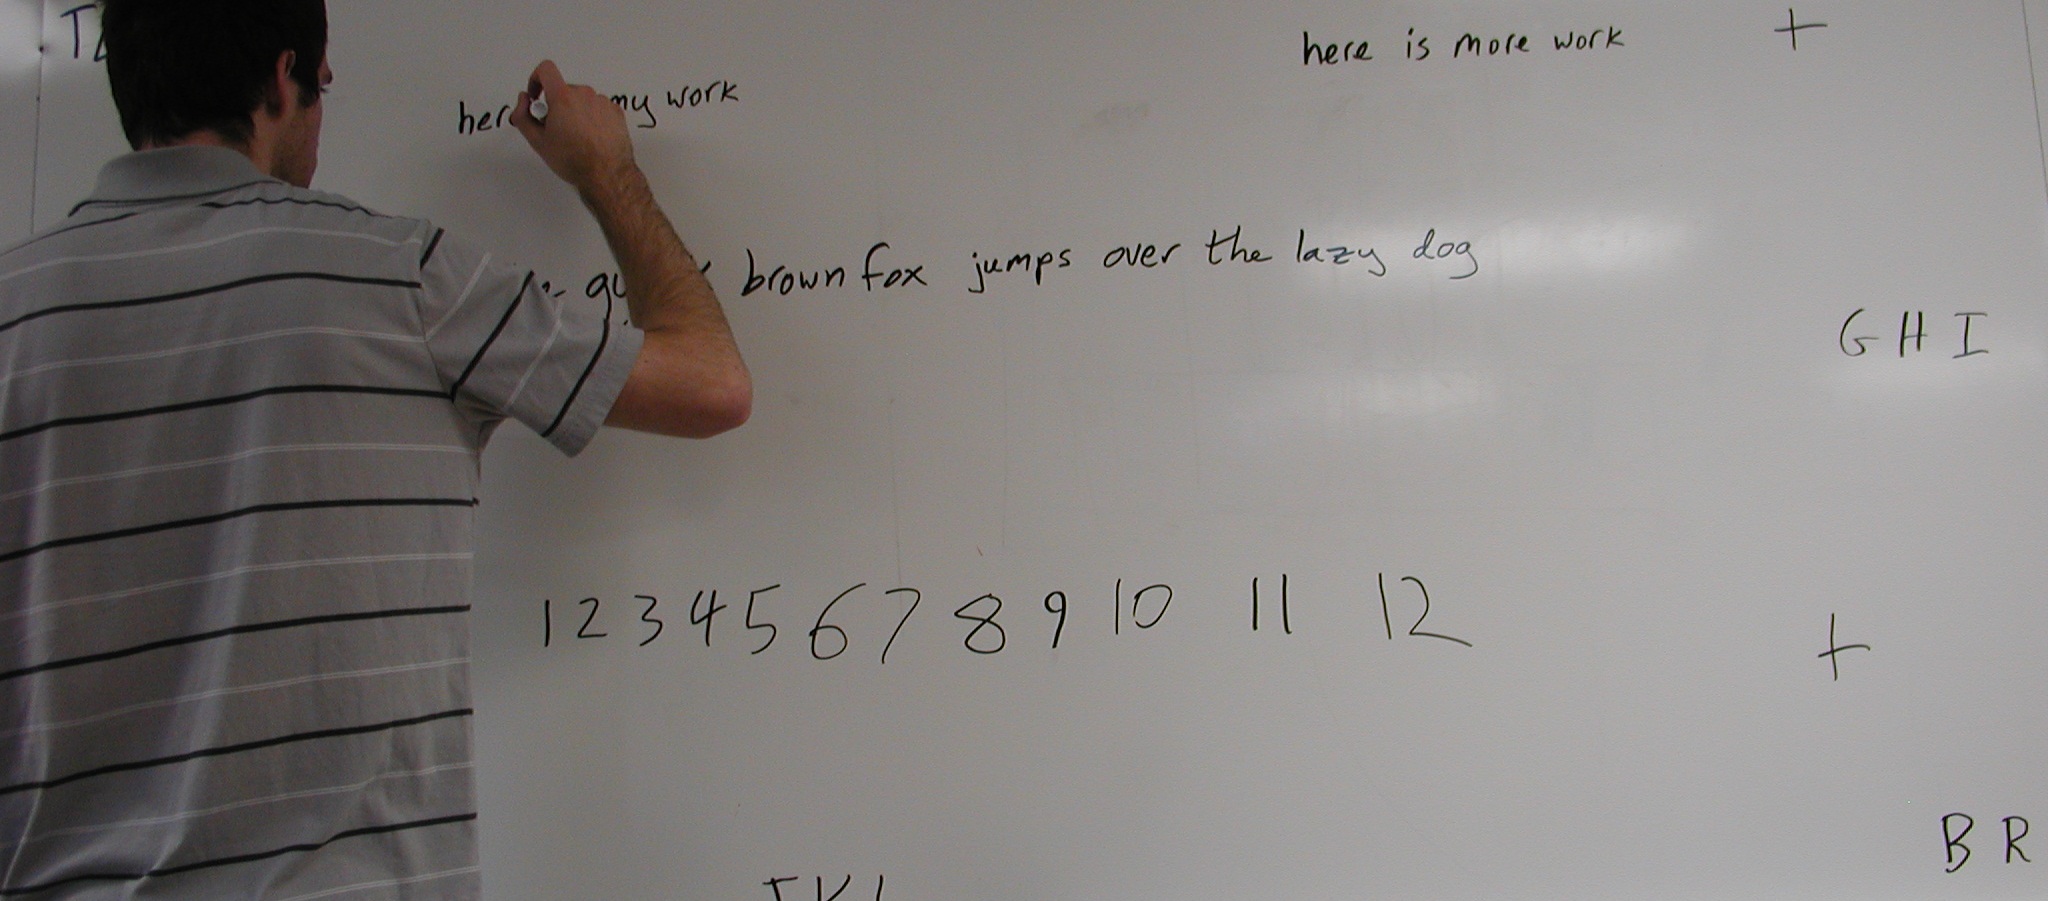 here is more work +
my work
brown fox jumps over the lazy dog
G H I
1 2 3 4 5 6 7 8 9 10 11 12
+
B R